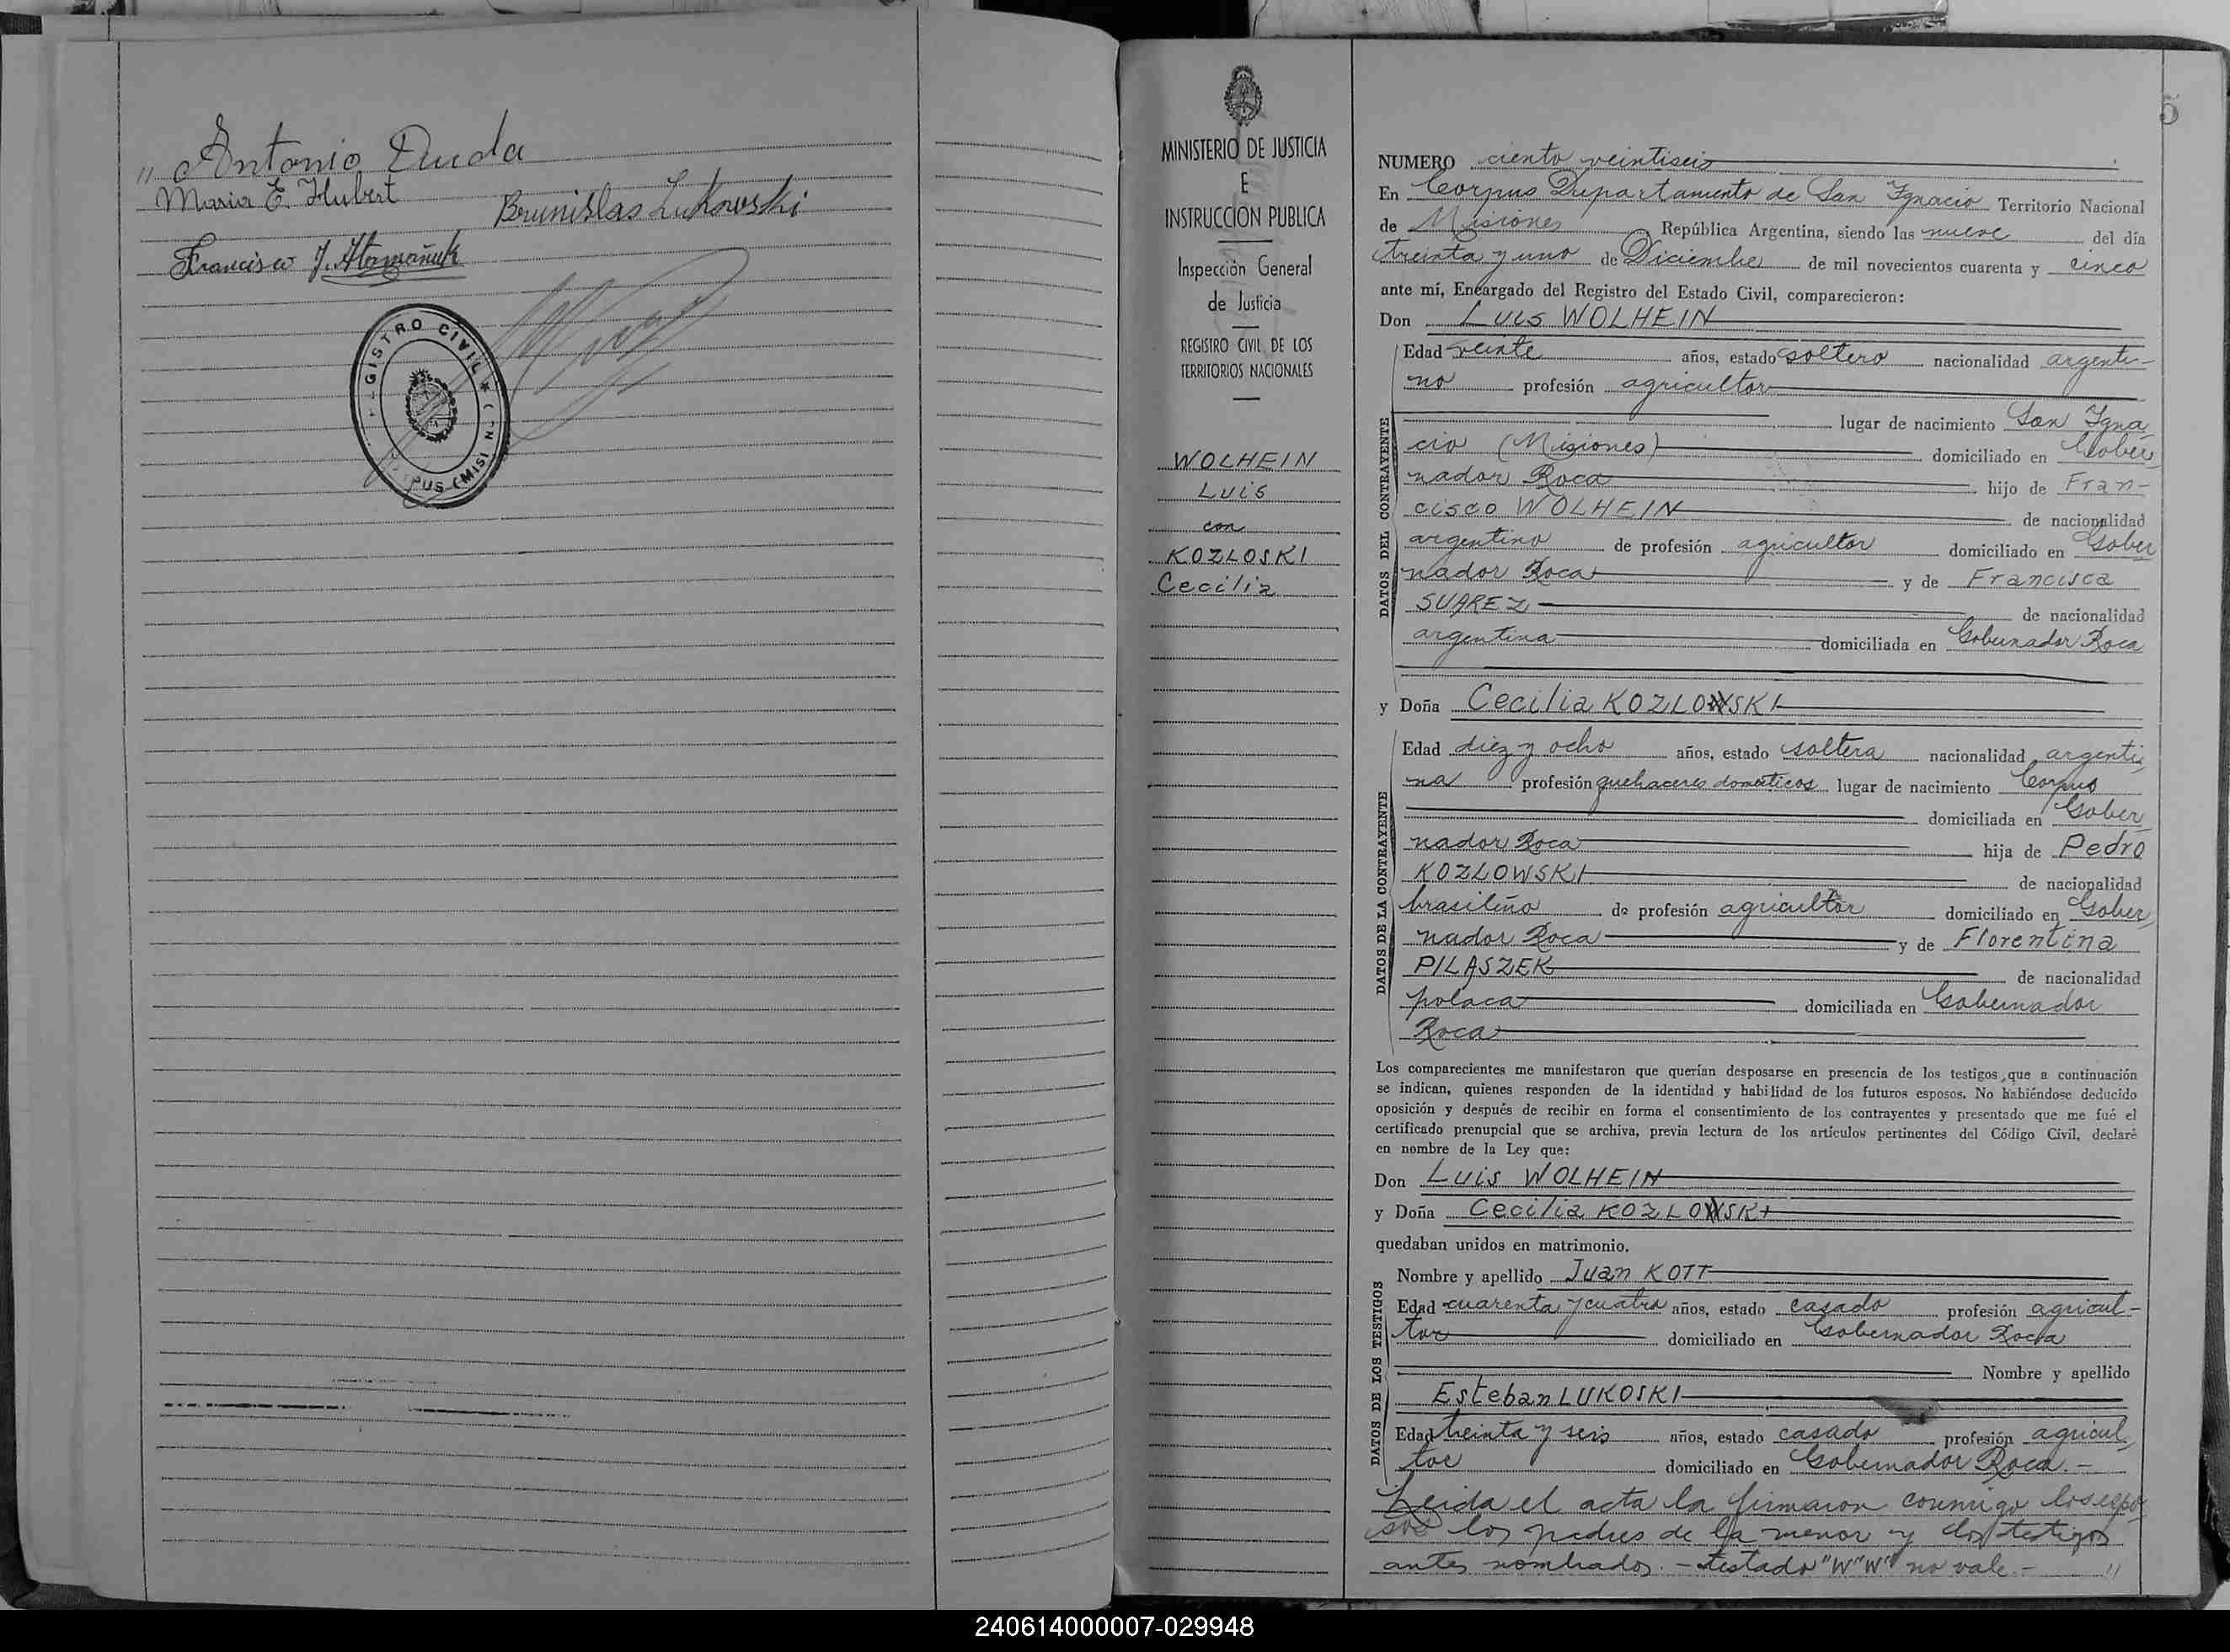 " Antonio Duda
Maria E. Hubert
Brunislas Lukowski
Francisco J. Atamañuk
REGISTRO CIVIL
CORPUS (MISIN
5
MINISTERIO DE JUSTICIA
E
INSTRUCCION PUBLICA
Inspección General
de Justicia
REGISTRO CIVIL DE LOS
TERRITORIOS NACIONALES
WOLHEIN
Luis
con
KOZLOSKI
Cecilia
NUMERO ciento veintiseis
En Corpus Departamento de San Ignacio Territorio Nacional
de Misiones República Argentina, siendo las nueve del día
treinta y uno de Diciembre de mil novecientos cuarenta y cinco
ante mí, Encargado del Registro del Estado Civil, comparecieron:
Don Luis WOLHEIN
DATOS DEL CONTRAYENTE
Edad veinte años, estado soltero nacionalidad argenti-
no profesión agricultor
lugar de nacimiento San Igna
cio (Misiones) domiciliado en Gober
nador Roca hijo de Fran-
cisco WOLHEIN de nacionalidad
argentino de profesión agricultor domiciliado en Gober
nador Roca y de Francisca
SUAREZ de nacionalidad
argentina domiciliada en Gobernador Roca
y Doña Cecilia KOZLOWSKI
DATOS DE LA CONTRAYENTE
Edad diez y ocho años, estado soltera nacionalidad argenti
na profesión quehaceres domésticos lugar de nacimiento Corpus
domiciliada en Gober
nador Roca hija de Pedro
KOZLOWSKI de nacionalidad
brasileño de profesión agricultor domiciliado en Gober
nador Roca y de Florentina
PILASZEK de nacionalidad
polaca domiciliada en Gobernador
Roca
Los comparecientes me manifestaron que querían desposarse en presencia de los testigos que a continuación
se indican, quienes responden de la identidad y habilidad de los futuros esposos. No habiéndose deducido
oposición y después de recibir en forma el consentimiento de los contrayentes y presentado que me fué el
certificado prenupcial que se archiva, previa lectura de los artículos pertinentes del Código Civil, declaré
en nombre de la Ley que:
Don Luis WOLHEIN
y Doña Cecilia KOZLOWSKI
quedaban unidos en matrimonio.
DATOS DE LOS TESTIGOS
Nombre y apellido Juan KOTT
Edad cuarenta y cuatro años, estado casado profesión agricul-
tor domiciliado en Gobernador Roca
Nombre y apellido
Esteban LUKOSKI
Edad treinta y seis años, estado casado profesión agricul
tor domiciliado en Gobernador Roca.-
Leida el acta la firmaron conmigo los espo
sos los padres de la menor y los testigos
antes nombrados.- testado "W" "W" no vale.- "
240614000007-029948